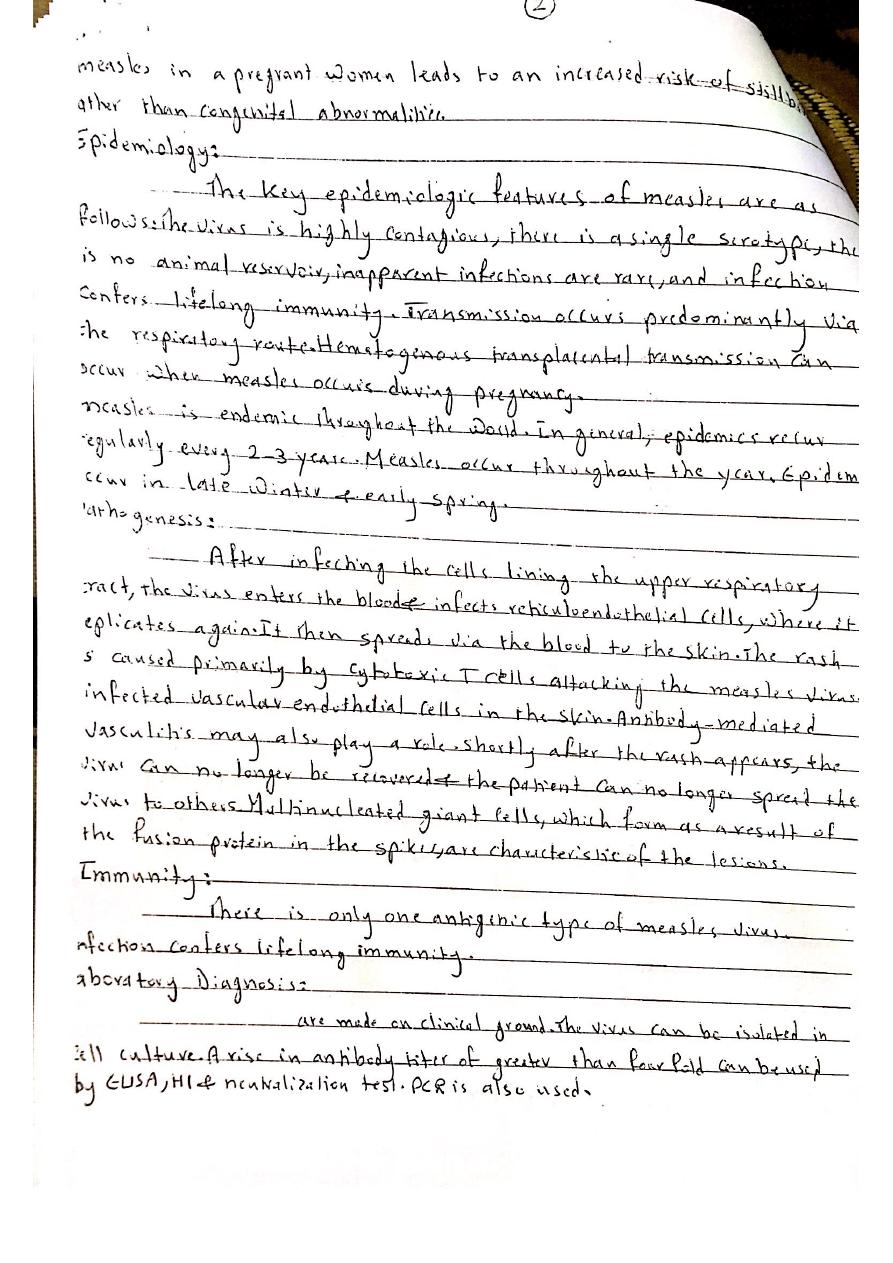 2
measles in a pregnant women leads to an increased risk of stillb
other than congenital abnormalities.
Epidemiology:
The key epidemiologic features of measles are as
follows: The virus is highly contagious, there is a single serotype, the
is no animal reservoir, inapparent infections are rare, and infection
confers lifelong immunity. Transmission occurs predominantly via
the respiratory route. Hematogenous transplacental transmission can
occur when measles occurs during pregnancy.
measles is endemic throughout the world. In general, epidemics recur
regularly every 2-3 years. Measles occur throughout the year. Epidem
ccur in late winter & early spring.
athogenesis:
After infecting the cells lining the upper respiratory
ract, the virus enters the blood & infects reticuloendothelial cells, where it
eplicates again. It then spreads via the blood to the skin. The rash
s caused primarily by cytotoxic T cells attacking the measles virus
infected vascular endothelial cells in the skin. Antibody-mediated
vasculitis may also play a role. Shortly after the rash appears, the
virus can no longer be recovered & the patient can no longer spread the
virus to others. Multinucleated giant cells, which form as a result of
the fusion protein in the spikes, are characteristic of the lesions.
Immunity:
There is only one antigenic type of measles virus.
nfection confers lifelong immunity.
aboratory Diagnosis:
are made on clinical ground. The virus can be isolated in
cell culture. A rise in antibody titer of greater than four fold can be used
by ELISA, HI & neutralization test. PCR is also used.